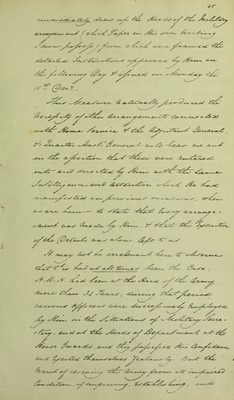 immediately drew up the Heads of the Military
arrangement (which Paper in his own writing
I now possess) from which were framed the
detailed Instructions approved by Him on
the following Day & issued on Monday the
11th Decr.
This Measure naturally produced the
Necessity of other arrangements connected
with Home Service & the Adjutant General
& Quarter Mast. General will bear me out
in the assertion that these were entered
into and directed by Him with the same
Intelligence and attention which He had
manifested on previous occasions, when
we are bound to state that every arrange-
ment was made by Him, & that the Execution
of the Details was alone left to us.
It may not be irrelevant here to observe
that such had at all times been the Case.
H.R.H. had been at the Head of the Army
more than 32 Years, during that period
various officers were successively employed
by Him in the Situations of Military Secre-
tary, and at the Heads of Department at the
Horse Guards, and they possessed His Confidence
and exerted themselves zealously. But the
merit of rescuing the Army from its impaired
Condition, of improving, establishing, and